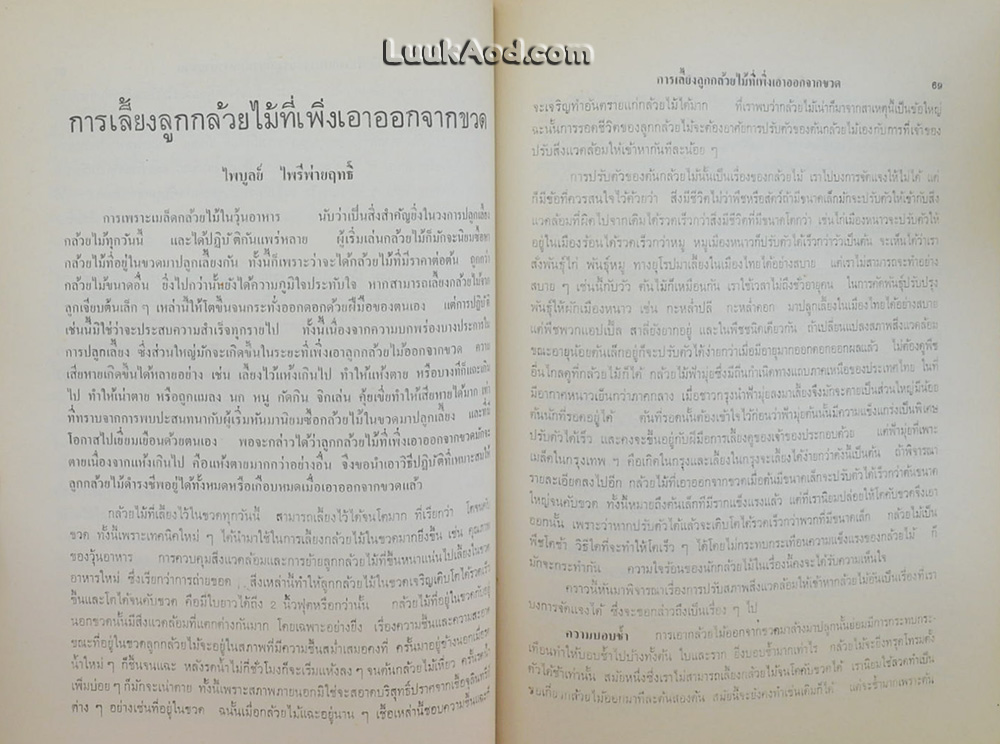 LuukAod.com
การเลี้ยงลูกกล้วยไม้ที่เพิ่งเอาออกจากขวด
ไพบูลย์ ไพรีพ่ายฤทธิ์
การเพาะเมล็ดกล้วยไม้ในวุ้นอาหาร นับว่าเป็นสิ่งสำคัญยิ่งในวงการปลูกเลี้ยง
กล้วยไม้ทุกวันนี้ และได้ปฏิบัติกันแพร่หลาย ผู้เริ่มเล่นกล้วยไม้ก็มักจะนิยมซื้อ
กล้วยไม้ที่อยู่ในขวดมาปลูกเลี้ยงกัน ทั้งนี้ก็เพราะว่าจะได้กล้วยไม้ที่มีราคาต่อต้น ถูกกว่า
กล้วยไม้ขนาดอื่น ยิ่งไปกว่านั้นยังได้ความภูมิใจประทับใจ หากสามารถเลี้ยงกล้วยไม้จาก
ลูกเจี๊ยบต้นเล็ก ๆ เหล่านี้ให้โตขึ้นจนกระทั่งออกดอกด้วยฝีมือของตนเอง แต่การปฏิบัติ
เช่นนี้มิใช่ว่าจะประสบความสำเร็จทุกรายไป ทั้งนี้เนื่องจากความบกพร่องบางประการใน
การปลูกเลี้ยง ซึ่งส่วนใหญ่มักจะเกิดขึ้นในระยะที่เพิ่งเอาลูกกล้วยไม้ออกจากขวด ความ
เสียหายเกิดขึ้นได้หลายอย่าง เช่น เลี้ยงไว้แห้งเกินไป ทำให้แห้งตาย หรือบางทีก็แฉะเกิน
ไป ทำให้เน่าตาย หรือถูกแมลง นก หนู กัดกิน จิกเล่น คุ้ยเขี่ยทำให้เสียหายได้มาก เท่า
ที่ทราบจากการพบปะสนทนากับผู้เริ่มหันมานิยมซื้อกล้วยไม้ในขวดมาปลูกเลี้ยง และที่มี
โอกาสไปเยี่ยมเยือนด้วยตนเอง พอจะกล่าวได้ว่าลูกกล้วยไม้ที่เพิ่งเอาออกจากขวดมักจะ
ตายเนื่องจากแห้งเกินไป คือแห้งตายมากกว่าอย่างอื่น จึงขอนำเอาวิธีปฏิบัติที่เหมาะสมให้
ลูกกล้วยไม้ดำรงชีพอยู่ได้ทั้งหมดหรือเกือบหมดเมื่อเอาออกจากขวดแล้ว
กล้วยไม้ที่เลี้ยงไว้ในขวดทุกวันนี้ สามารถเลี้ยงไว้ได้จนโตมาก ที่เรียกว่า โตจนคับ
ขวด ทั้งนี้เพราะเทคนิคใหม่ ๆ ได้นำมาใช้ในการเลี้ยงกล้วยไม้ในขวดมากยิ่งขึ้น เช่น คุณภาพ
ของวุ้นอาหาร การควบคุมสิ่งแวดล้อมและการย้ายลูกกล้วยไม้ที่ขึ้นหนาแน่นไปเลี้ยงในขวด
อาหารใหม่ ซึ่งเรียกว่าการถ่ายขวด สิ่งเหล่านี้ทำให้ลูกกล้วยไม้ในขวดเจริญเติบโตได้รวดเร็ว
ขึ้นและโตได้จนคับขวด คือมีใบยาวได้ถึง 2 นิ้วฟุตหรือกว่านั้น กล้วยไม้ที่อยู่ในขวดกับอยู่
นอกขวดนั้นมีสิ่งแวดล้อมที่แตกต่างกันมาก โดยเฉพาะอย่างยิ่ง เรื่องความชื้นและความสะอาด
ขณะที่อยู่ในขวดลูกกล้วยไม้จะอยู่ในสภาพที่มีความชื้นสม่ำเสมอคงที่ ครั้นมาอยู่ข้างนอกเมื่อรด
น้ำใหม่ ๆ ก็ชื้นจนแฉะ หลังรดน้ำไม่กี่ชั่วโมงก็จะเริ่มแห้งลง ๆ จนต้นกล้วยไม้เหี่ยว ครั้นรดน้ำ
เพิ่มบ่อย ๆ ก็มักจะเน่าตาย ทั้งนี้เพราะสภาพภายนอกมิใช่จะสะอาดบริสุทธิ์ปราศจากเชื้อจุลินทรีย์
ต่าง ๆ อย่างเช่นที่อยู่ในขวด ฉนั้นเมื่อกล้วยไม้แฉะอยู่นาน ๆ เชื้อเหล่านี้ชอบความชื้นแฉะก็
การเลี้ยงลูกกล้วยไม้ที่เพิ่งเอาออกจากขวด 69
จะเจริญทำอันตรายแก่กล้วยไม้ได้มาก ที่เราพบว่ากล้วยไม้เน่าก็มาจากสาเหตุนี้เป็นข้อใหญ่
ฉะนั้นการรอดชีวิตของลูกกล้วยไม้จะต้องอาศัยการปรับตัวของต้นกล้วยไม้เองกับการที่เจ้าของ
ปรับสิ่งแวดล้อมให้เข้าหากันทีละน้อย ๆ
การปรับตัวของต้นกล้วยไม้นั้นเป็นเรื่องของกล้วยไม้ เราไปบงการจัดแจงให้ไม่ได้ แต่
ก็มีข้อที่ควรสนใจไว้ด้วยว่า สิ่งมีชีวิตไม่ว่าพืชหรือสัตว์ถ้ามีขนาดเล็กมักจะปรับตัวให้เข้ากับสิ่ง
แวดล้อมที่ผิดไปจากเดิมได้รวดเร็วกว่าสิ่งมีชีวิตที่มีขนาดโตกว่า เช่นไก่เมืองหนาวจะปรับตัวให้
อยู่ในเมืองร้อนได้รวดเร็วกว่าหมู หมูเมืองหนาวก็ปรับตัวได้เร็วกว่าวัวเป็นต้น จะเห็นได้ว่าเรา
สั่งพันธุ์ไก่ พันธุ์หมู ทางยุโรปมาเลี้ยงในเมืองไทยได้อย่างสบาย แต่เราไม่สามารถจะทำอย่าง
สบาย ๆ เช่นนี้กับวัว ต้นไม้ก็เหมือนกัน เราใช้เวลาไม่ถึงชั่วอายุคน ในการคัดพันธุ์ปรับปรุง
พันธุ์ให้ผักเมืองหนาว เช่น กะหล่ำปลี กะหล่ำดอก มาปลูกเลี้ยงในเมืองไทยได้อย่างสบาย
แต่พืชพวกแอปเปิ้ล สาลี่ยังยากอยู่ และในพืชชนิดเดียวกัน ถ้าเปลี่ยนแปลงสภาพสิ่งแวดล้อม
ขณะอายุน้อยต้นเล็กอยู่ก็จะปรับตัวได้ง่ายกว่าเมื่อมีอายุมากออกดอกออกผลแล้ว ไม่ต้องดูพืช
อื่นไกลดูที่กล้วยไม้ก็ได้ กล้วยไม้ฟ้ามุ่ยซึ่งมีถิ่นกำเนิดทางแถบภาคเหนือของประเทศไทย ในที่
มีอากาศหนาวเย็นกว่าภาคกลาง เมื่อชาวกรุงนำฟ้ามุ่ยลงมาเลี้ยงจึงมักจะตายเป็นส่วนใหญ่มีน้อย
ต้นนักที่รอดอยู่ได้ ต้นที่รอดนั้นต้องเข้าใจไว้ก่อนว่าฟ้ามุ่ยต้นนั้นมีความแข็งแกร่งเป็นพิเศษ
ปรับตัวได้เร็ว และคงจะขึ้นอยู่กับฝีมือการเลี้ยงดูของเจ้าของประกอบด้วย แต่ฟ้ามุ่ยที่เพาะ
เมล็ดในกรุงเทพ ๆ คือเกิดในกรุงและเลี้ยงในกรุงจะเลี้ยงได้ง่ายกว่าดังนี้เป็นต้น ถ้าพิจารณา
รายละเอียดลงไปอีก กล้วยไม้ที่เอาออกจากขวดเมื่อต้นมีขนาดเล็กจะปรับตัวได้เร็วกว่าต้นขนาด
ใหญ่จนคับขวด ทั้งนี้หมายถึงต้นเล็กที่มีรากแข็งแรงแล้ว แต่ที่เรานิยมปล่อยให้โตคับขวดจึงเอา
ออกนั้น เพราะว่าหากปรับตัวได้แล้วจะเติบโตได้รวดเร็วกว่าพวกที่มีขนาดเล็ก กล้วยไม้เป็น
พืชโตช้า วิธีใดที่จะทำให้โตเร็ว ๆ ได้โดยไม่กระทบกระเทือนความแข็งแรงของกล้วยไม้ ก็
มักจะกระทำกัน ความใจร้อนของนักกล้วยไม้ในเรื่องนี้คงจะได้รับความเห็นใจ
คราวนี้หันมาพิจารณาเรื่องการปรับสภาพสิ่งแวดล้อมให้เข้าหากล้วยไม้อันเป็นเรื่องที่เรา
บงการจัดแจงได้ ซึ่งจะขอกล่าวถึงเป็นเรื่อง ๆ ไป
ความบอบช้ำ การเอากล้วยไม้ออกจากขวดมาล้างมาปลูกนั้นย่อมมีการกระทบกระ-
เทือนทำให้บอบช้ำไปบ้างทั้งต้น ใบและราก ยิ่งบอบช้ำมากเท่าไร กล้วยไม้จะยิ่งทรุดโทรมตั้ง
ตัวได้ช้าเท่านั้น สมัยหนึ่งซึ่งเราไม่สามารถเลี้ยงกล้วยไม้จนโตคับขวดได้ เรานิยมใช้ลวดทำเป็น
ขอเกี่ยวกล้วยไม้ออกมาทีละต้นสองต้น สมัยนี้จะยังคงทำเช่นเดิมก็ได้ แต่จะช้ำมากเพราะต้น